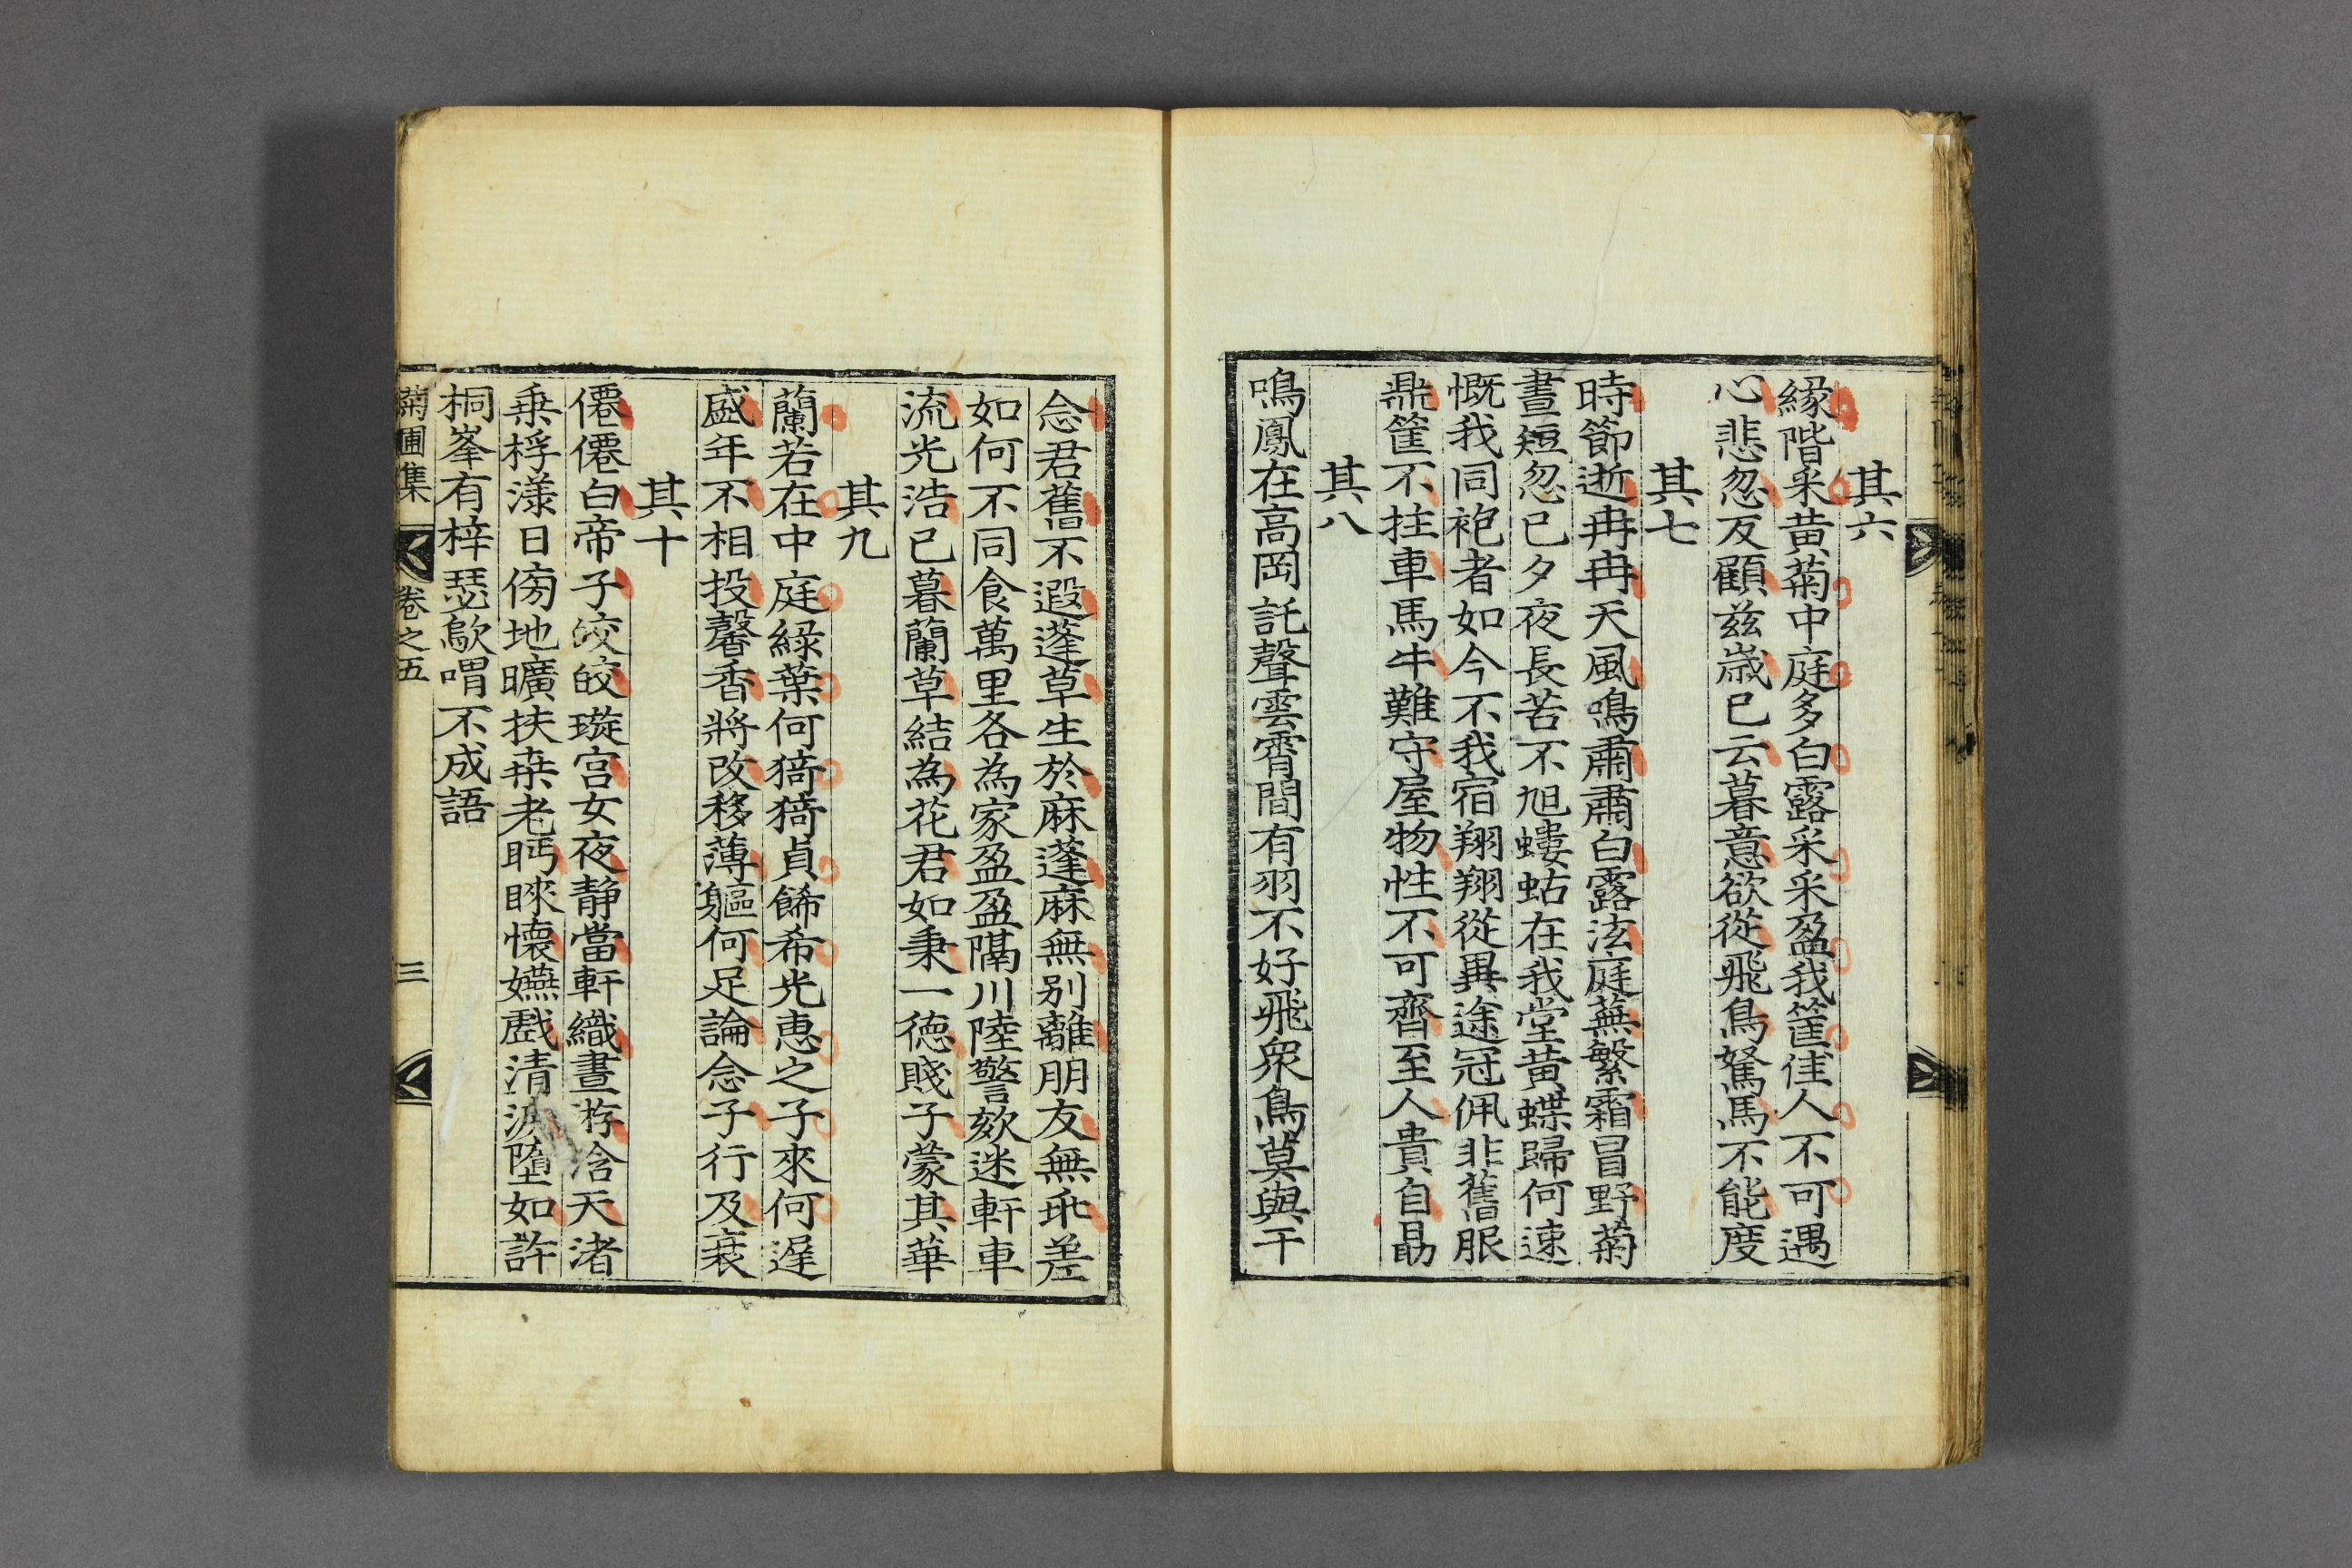 其六
緣階采黃菊中庭多白露采采盈我筐佳人不可遇
心悲忽反顧兹歲已云暮意欲從飛鳥駑馬不能度
其七
時節逝冉冉天風鳴肅肅白露泫庭蕪繁霜冒野菊
晝短忽已夕夜長苦不旭螻蛄在我堂黃蝶歸何速
慨我同袍者如今不我宿翔翔從異途冠佩非舊服
鼎筐不拄車馬牛難守屋物性不可齊至人貴自勗
其八
鳴鳳在高岡託聲雲霄間有羽不好飛衆鳥莫與干
念君舊不遐蓬草生於麻蓬麻無别離朋友無乖差
如何不同食萬里各為家盈盈隔川陸警欬迷軒車
流光浩已暮蘭草結為花君如秉一德賤子蒙其華
其九
蘭若在中庭綠葉何猗猗貞餙希光惠之子來何遅
盛年不相投馨香將改移薄軀何足論念子行及衰
其十
僊僊白帝子皎皎璇宫女夜静當軒織晝游滄天渚
乗桴漾日傍地曠扶桒老眄睞懷嬿戲清淚墮如許
桐峯有梓瑟歍喟不成語
菊圃集 卷之五 三